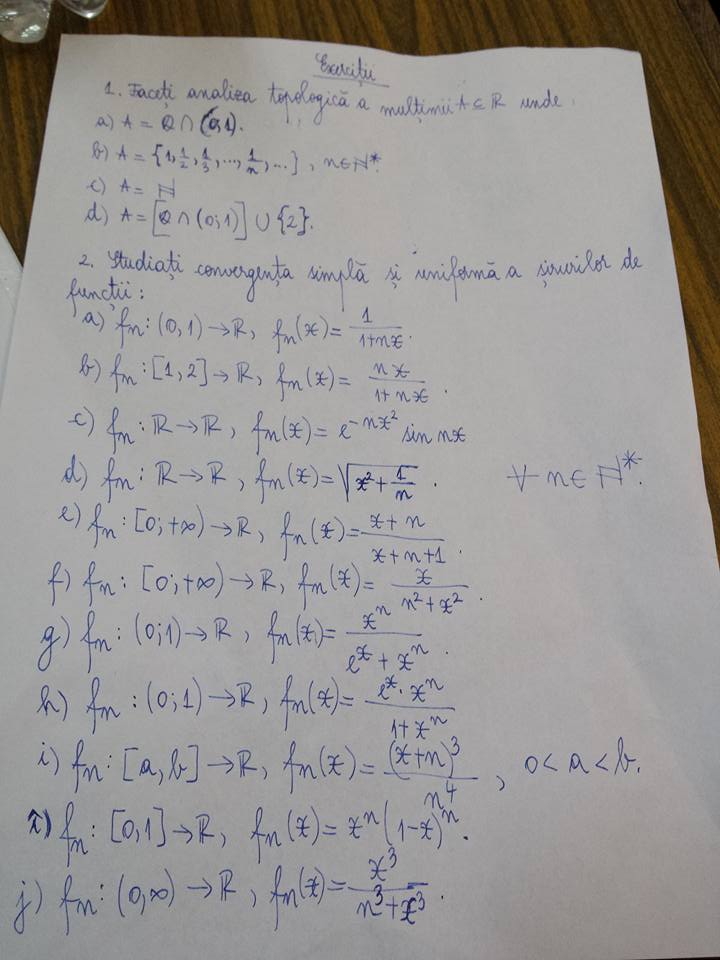 Exerciții
1. Faceți analiza topologică a mulțimii A ⊆ ℝ unde
a) A = ℚ ∩ (0,1).
b) A = {1, 1/2, 1/3, ..., 1/n, ...}, n∈ℕ*.
c) A = ℕ
d) A = [ℚ ∩ (0;1)] ∪ {2}.
2. Studiați convergența simplă și uniformă a șirurilor de
funcții:
a) fn : (0,1) → ℝ, fn(x) = 1/(1+nx).
b) fn : [1,2] → ℝ, fn(x) = nx/(1+nx).
c) fn : ℝ → ℝ, fn(x) = e^(-nx²) sin nx
d) fn : ℝ → ℝ, fn(x) = √(x² + 1/n). ∀ n∈ℕ*.
e) fn : [0;+∞) → ℝ, fn(x) = (x+n)/(x+n+1).
f) fn : [0;+∞) → ℝ, fn(x) = x/(n²+x²).
g) fn : (0;1) → ℝ, fn(x) = x^n/(e^x + x^n).
h) fn : (0;1) → ℝ, fn(x) = (e^x · x^n)/(1+x^n)
i) fn : [a,b] → ℝ, fn(x) = (x+n)³/n⁴, 0<a<b.
fn : [0,1] → ℝ, fn(x) = x^n(1-x)^n.
j) fn : (0,∞) → ℝ, fn(x) = x³/(n³+x³).